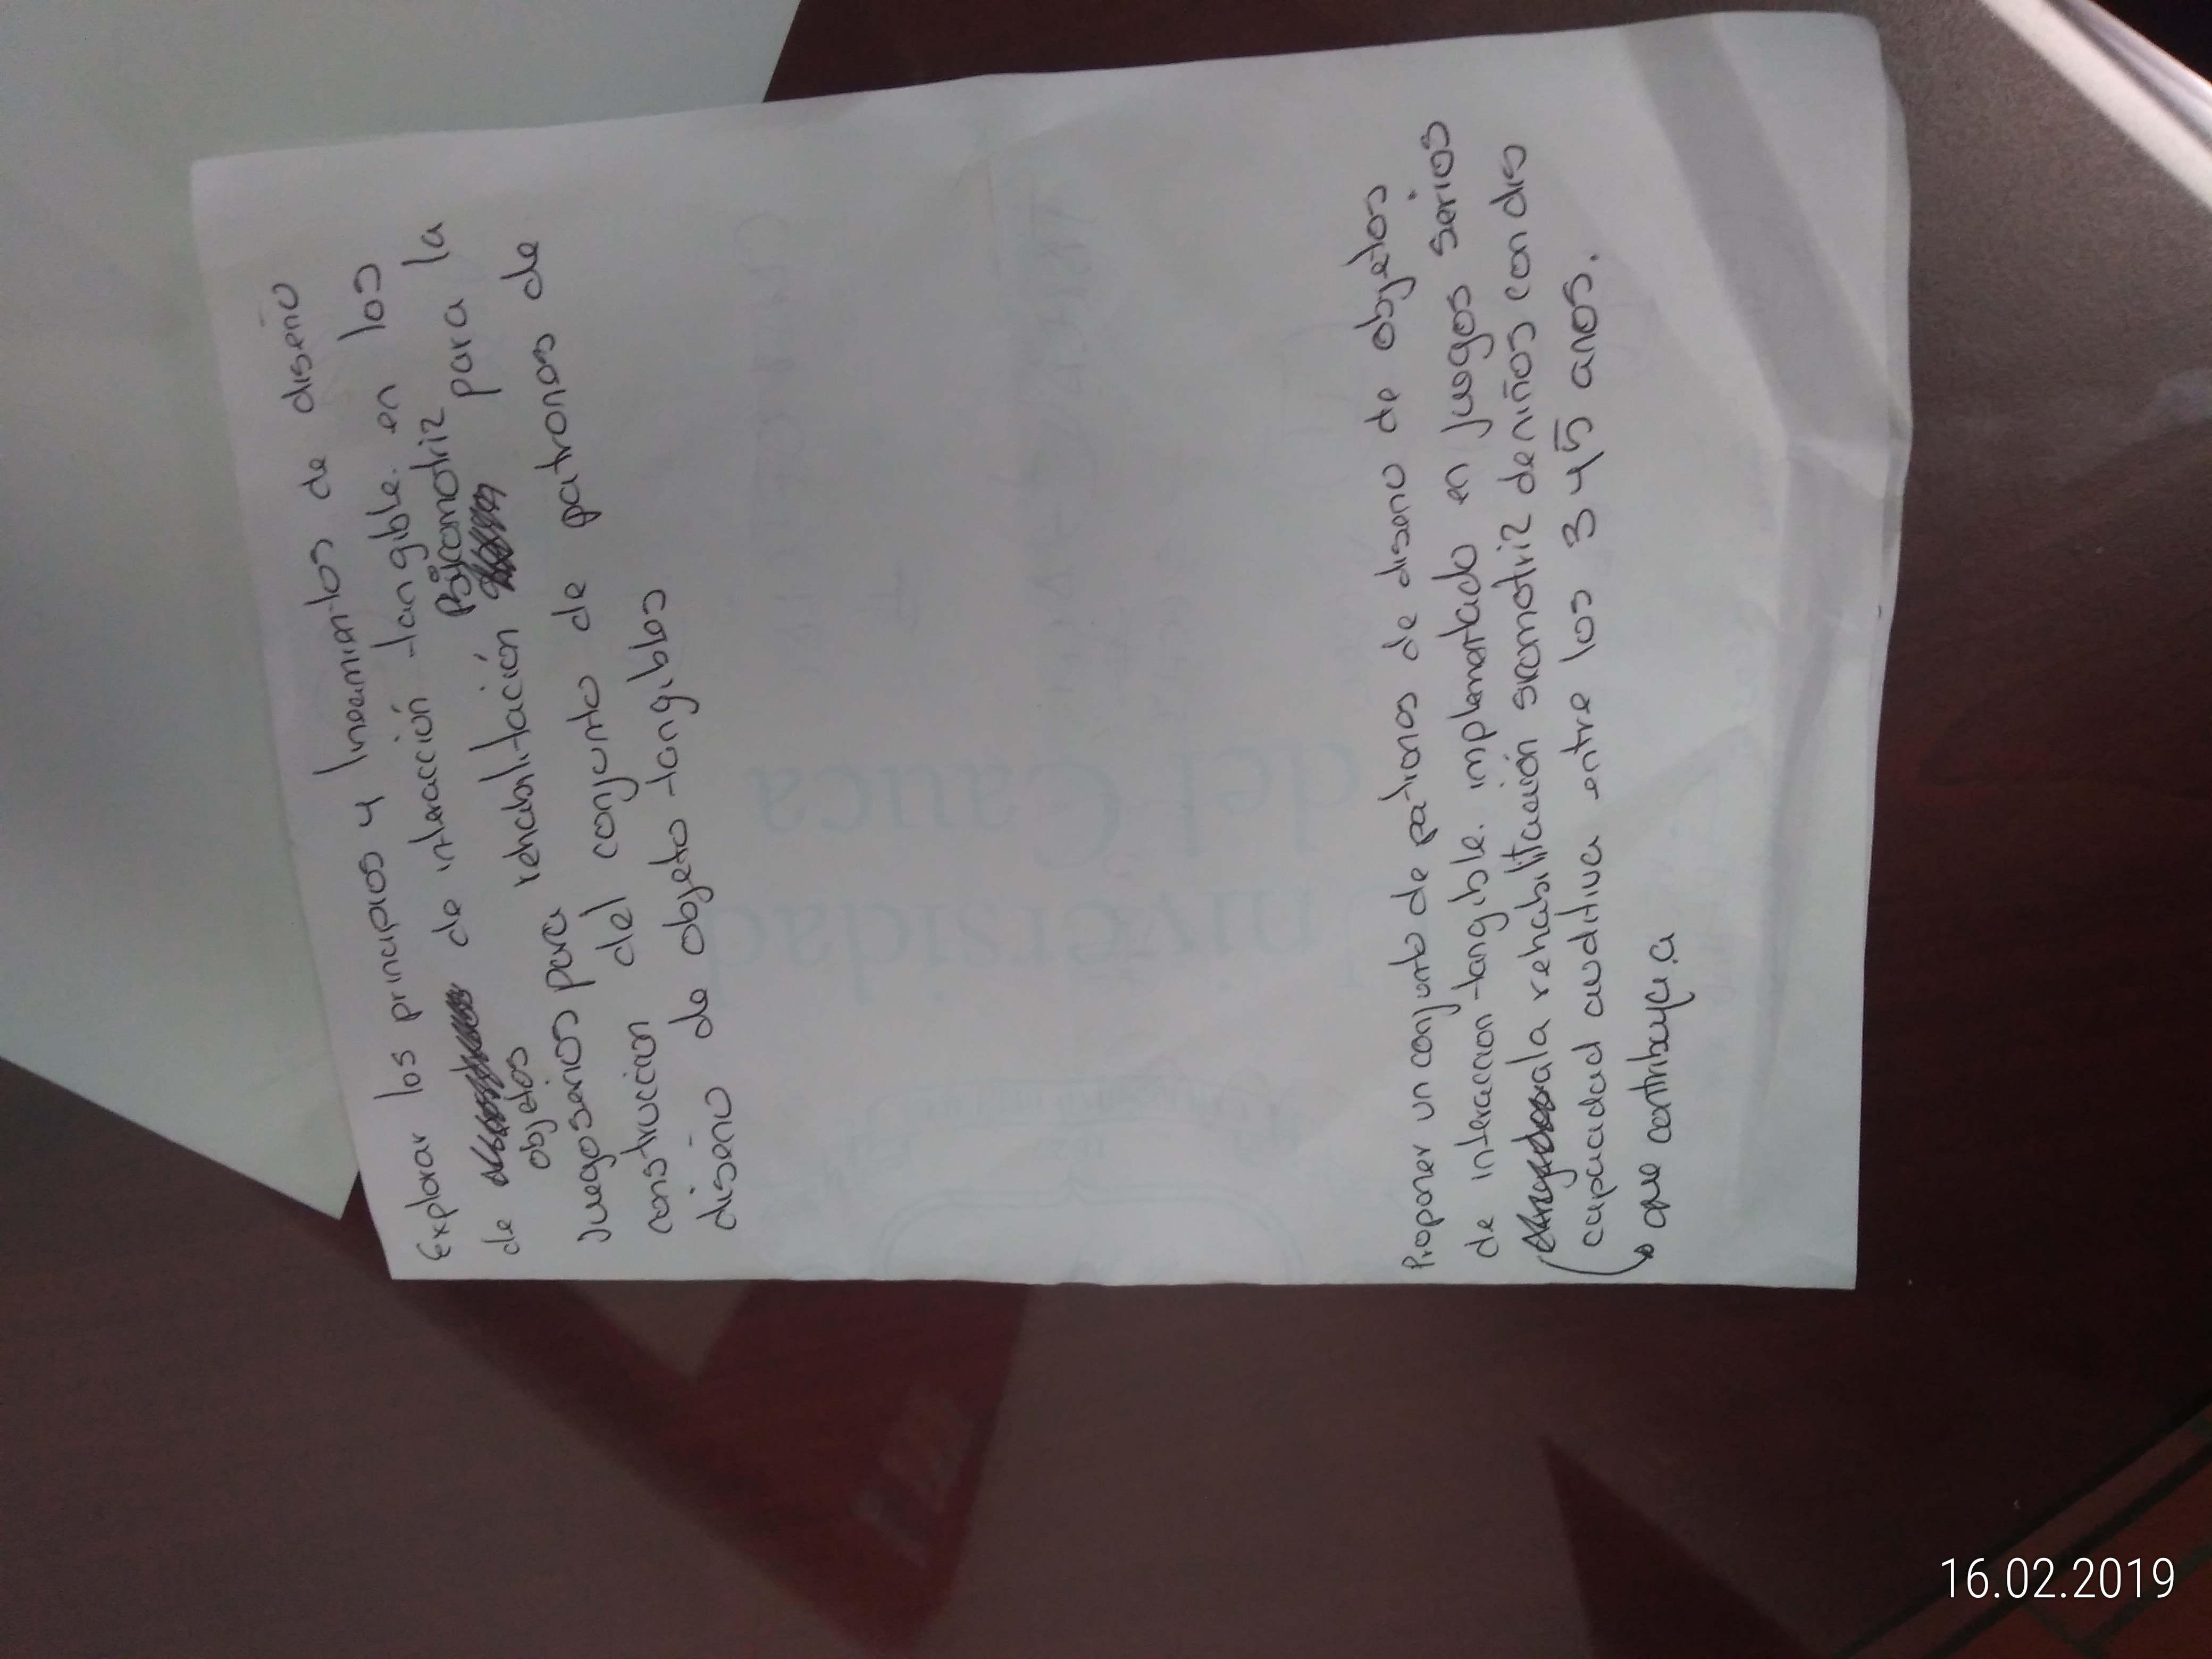 Explorar los principios y lineamientos de diseño
de objetos de interacción tangible. en los
Juegoserios para rehabilitación Psicomotriz para la
construccion del conjunto de patrones de
diseño de objeto tangibles
Universidad
del Cauca
Proponer un conjunto de patrones de diseno de objetos
de interaccion tangible. implementado en juegos serios
a la rehabilitación sicomotriz de niños con dis
capacidad auditiva entre los 3 y 5 anos.
que contribuya a
16.02.2019